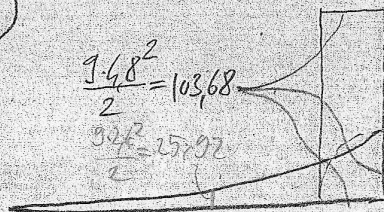 9·4,8²/2 = 103,68
9·2,4²/2 = 25,92